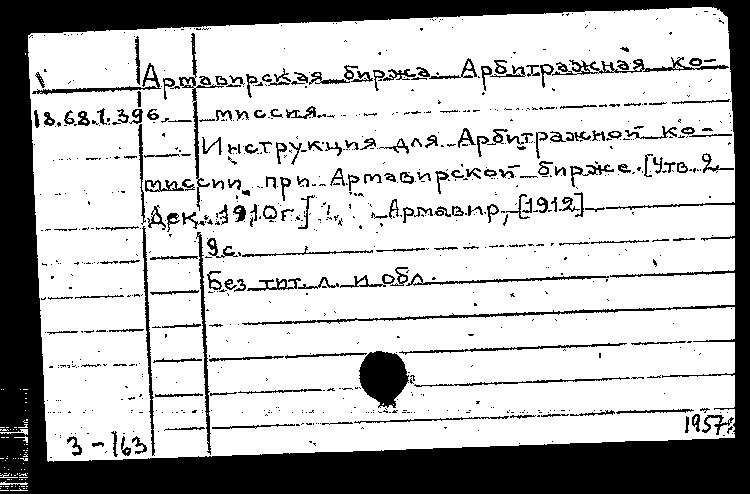 Армавирская биржа. Арбитражная ко-
18.68.7.396. миссия.
Инструкция для Арбитражной ко-
миссии при Армавирской бирже. [Утв. 2
Дек. 1910г.] Армавир, [1912]
8с.
Без тит. л. и обл.
3-163
1957